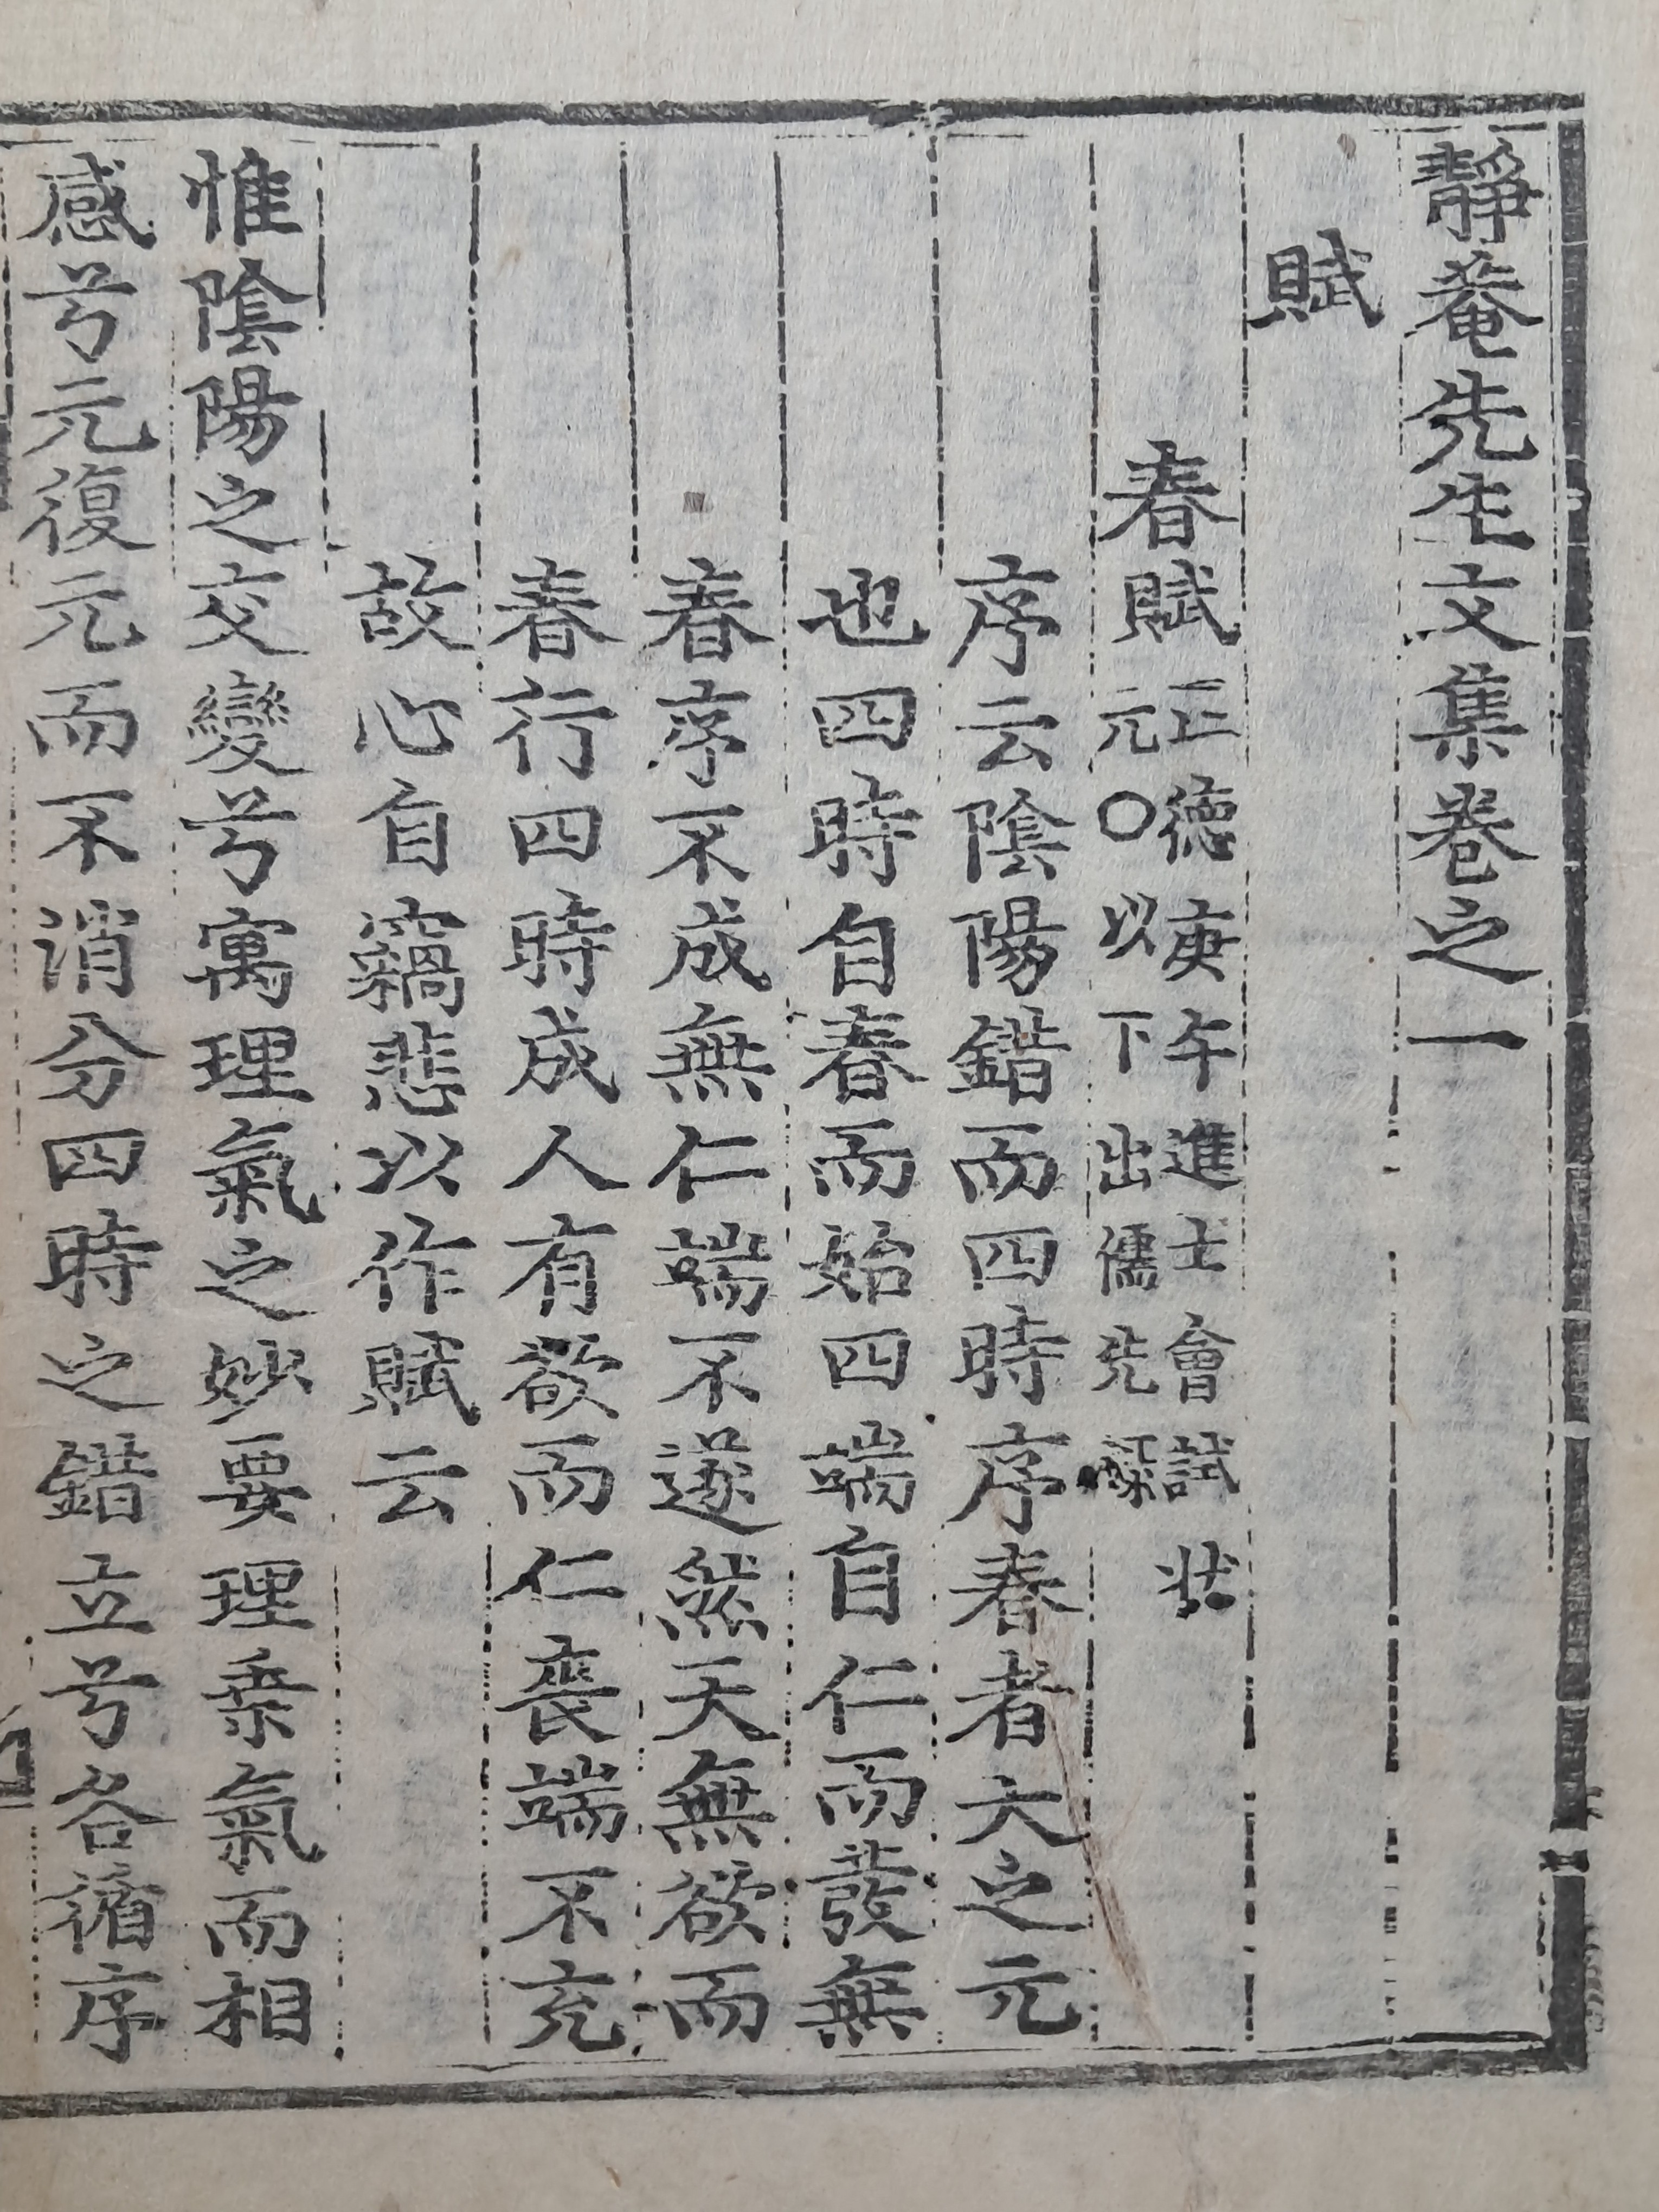 靜菴先生文集卷之一
賦
春賦 正德庚午進士會試狀
元○以下出儒先
序云陰陽錯而四時序春者天之元
也四時自春而始四端自仁而發無
春序不成無仁端不遂然天無欲而
春行四時成人有欲而仁喪端不充
故心自竊悲以作賦云
惟陰陽之交變兮寓理氣之妙要理乘氣而相
感兮元復元而不消分四時之錯立兮各循序